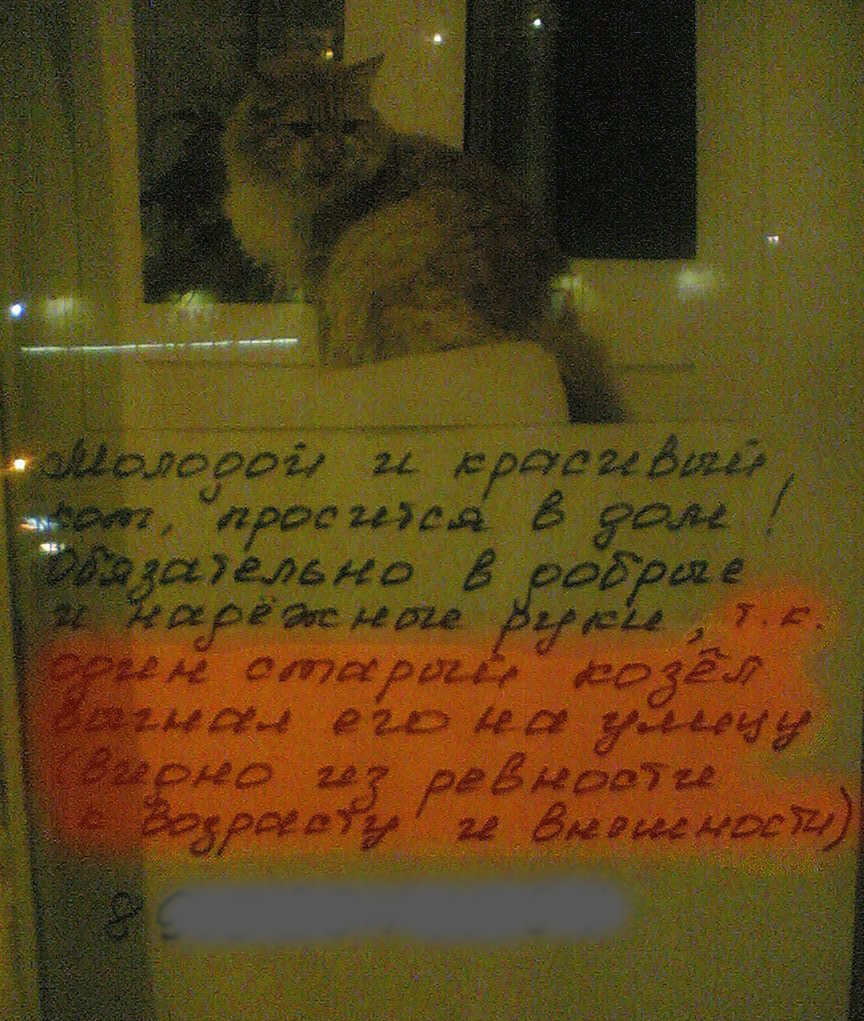 Молодой и красивый
кот, просится в дом!
Обязательно в добрые
и надёжные руки, т.к.
один старый козёл
выгнал его на улицу
(видно из ревности
к возрасту и внешности)
8